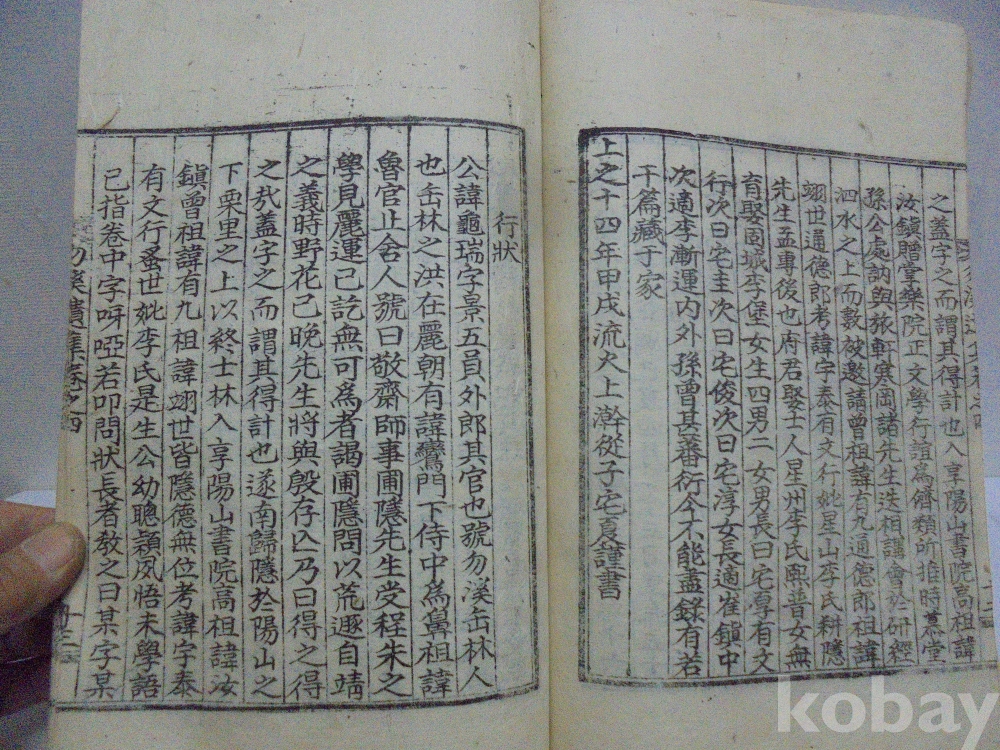 之蓋字之而謂其得計也入享陽山書院高祖諱
汝鎭贈掌樂院正文學行誼爲儕類所推時慕堂
孫公處訥與旅軒寒岡諸先生迭相講會於硏經
泗水之上而數被邀請曾祖諱有九通德郞祖諱
翊世通德郞考諱字泰有文行妣星山李氏耕隱
先生孟專後也府君娶士人星州李氏熙普女無
育娶固城李堡女生四男二女男長曰宅專有文
行次曰宅圭次曰宅俊次曰宅淳女長適崔鎭中
次適李漸運內外孫曾甚蕃衍今不能盡錄有若
干篇藏于家
上之十四年甲戌流火上澣從子宅夏謹書
行狀
公諱龜瑞字景五員外郞其官也號勿溪缶林人
也缶林之洪在麗朝有諱鸞門下侍中爲鼻祖諱
魯官止舍人號曰敬齋師事圃隱先生受程朱之
學見麗運已訖無可爲者謁圃隱問以荒遯自靖
之義時野花已晚先生將與殷存亡乃曰得之得
之哉蓋字之而謂其得計也遂南歸隱於陽山之
下栗里之上以終士林入享陽山書院高祖諱汝
鎭曾祖諱有九祖諱翊世皆隱德無位考諱字泰
有文行蚤世妣李氏是生公幼聰穎夙悟未學語
已指卷中字呀啞若叩問狀長者敎之曰某字某
勿溪遺集卷之四
kobay